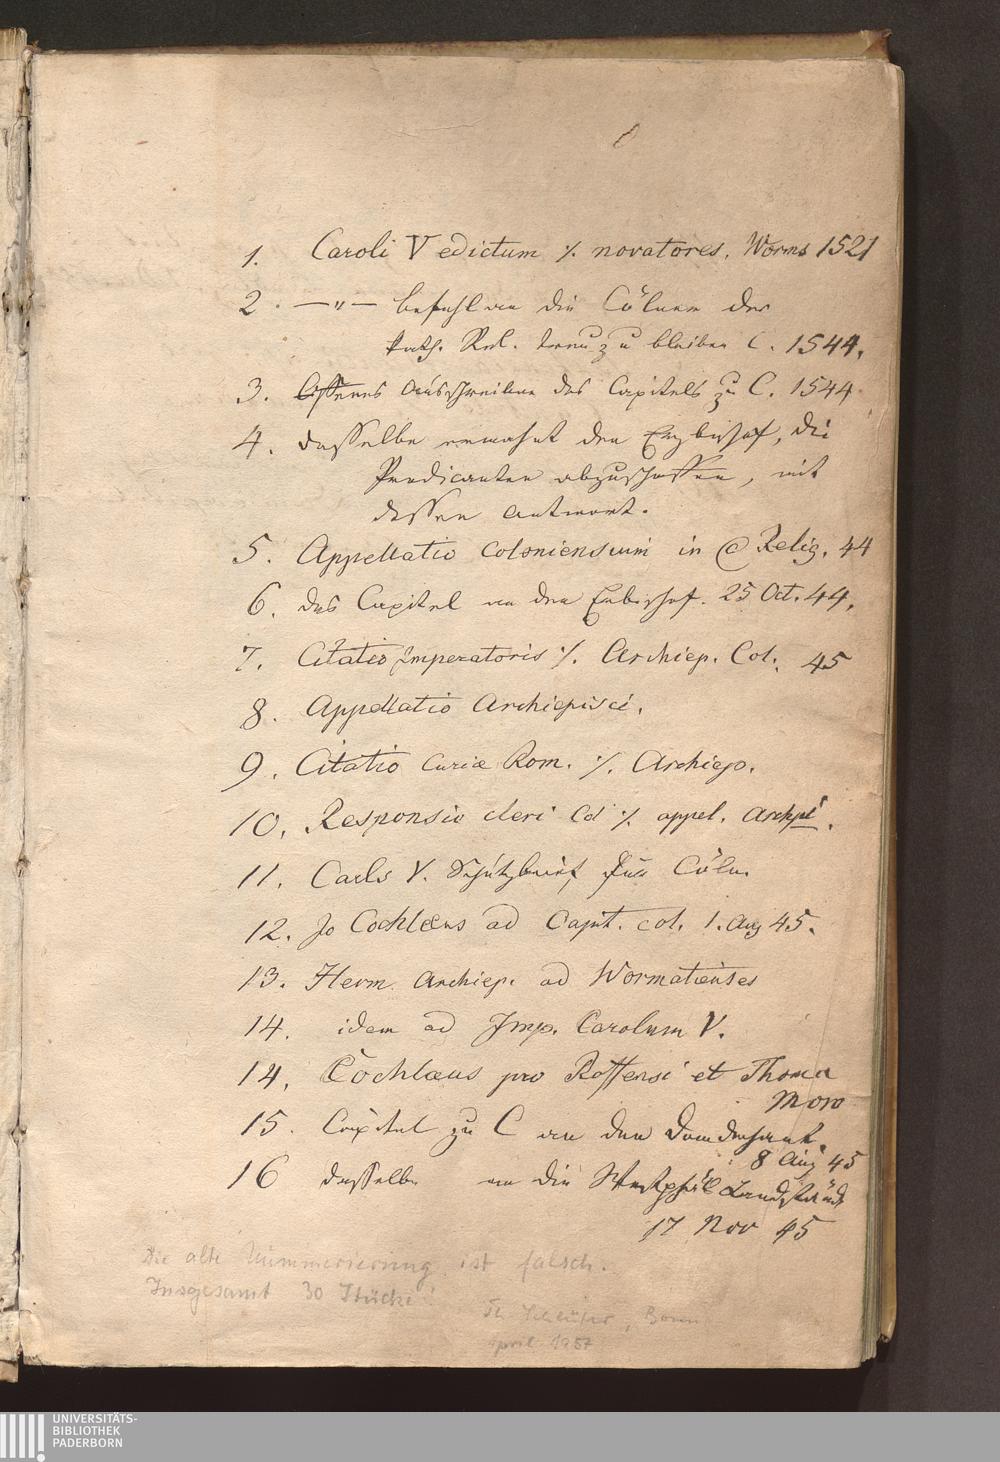 1. Caroli V edictum ./. novatores. Worms 1521
2. — " — befehl an die Cölner der
kath. Rel. treu zu bleiben C. 1544.
3. Offenes Ausschreiben des Capitels zu C. 1544
4. dasselbe ermahnt den Erzbischof, die
Predicanten abzuschaffen, mit
dessen Antwort.
5. Appellatio Coloniensium in Relig. 44
6. das Capitel an den Erbischof. 25 Oct. 44.
7. Citatio Imperatoris ./. Archiep. Col. 45
8. Appellatio Archiepisci.
9. Citatio Curiæ Rom. ./. Archiep.
10. Responsio cleri Col ./. appel. Archpi.
11. Carls V. Schützbrief für Cöln.
12. Jo Cochlæus ad Capit. col. 1. Aug 45.
13. Herm. Archiep. ad Wormatienses
14. idem ad Imp. Carolum V.
14. Cochlæus pro Roffensi et Thoma
Moro
15. Capitel zu C an den Domdechant.
8 Aug 45
16 dasselbe an die Westphäl Landstände
17 Nov 45
Die alte Nummerierung ist falsch.
Insgesamt 30 Stücke!
Schlüter, Bonn
April 1957
UNIVERSITÄTS-
BIBLIOTHEK
PADERBORN